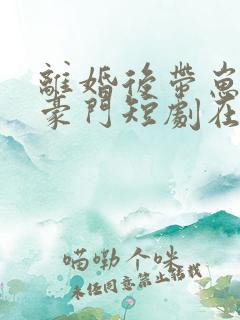 離婚後帶崽
豪門短劇在
喵嘞个咪
未经同意禁止转载